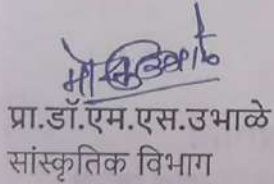 प्रा.डॉ.एम.एस.उभाळे
सांस्कृतिक विभाग